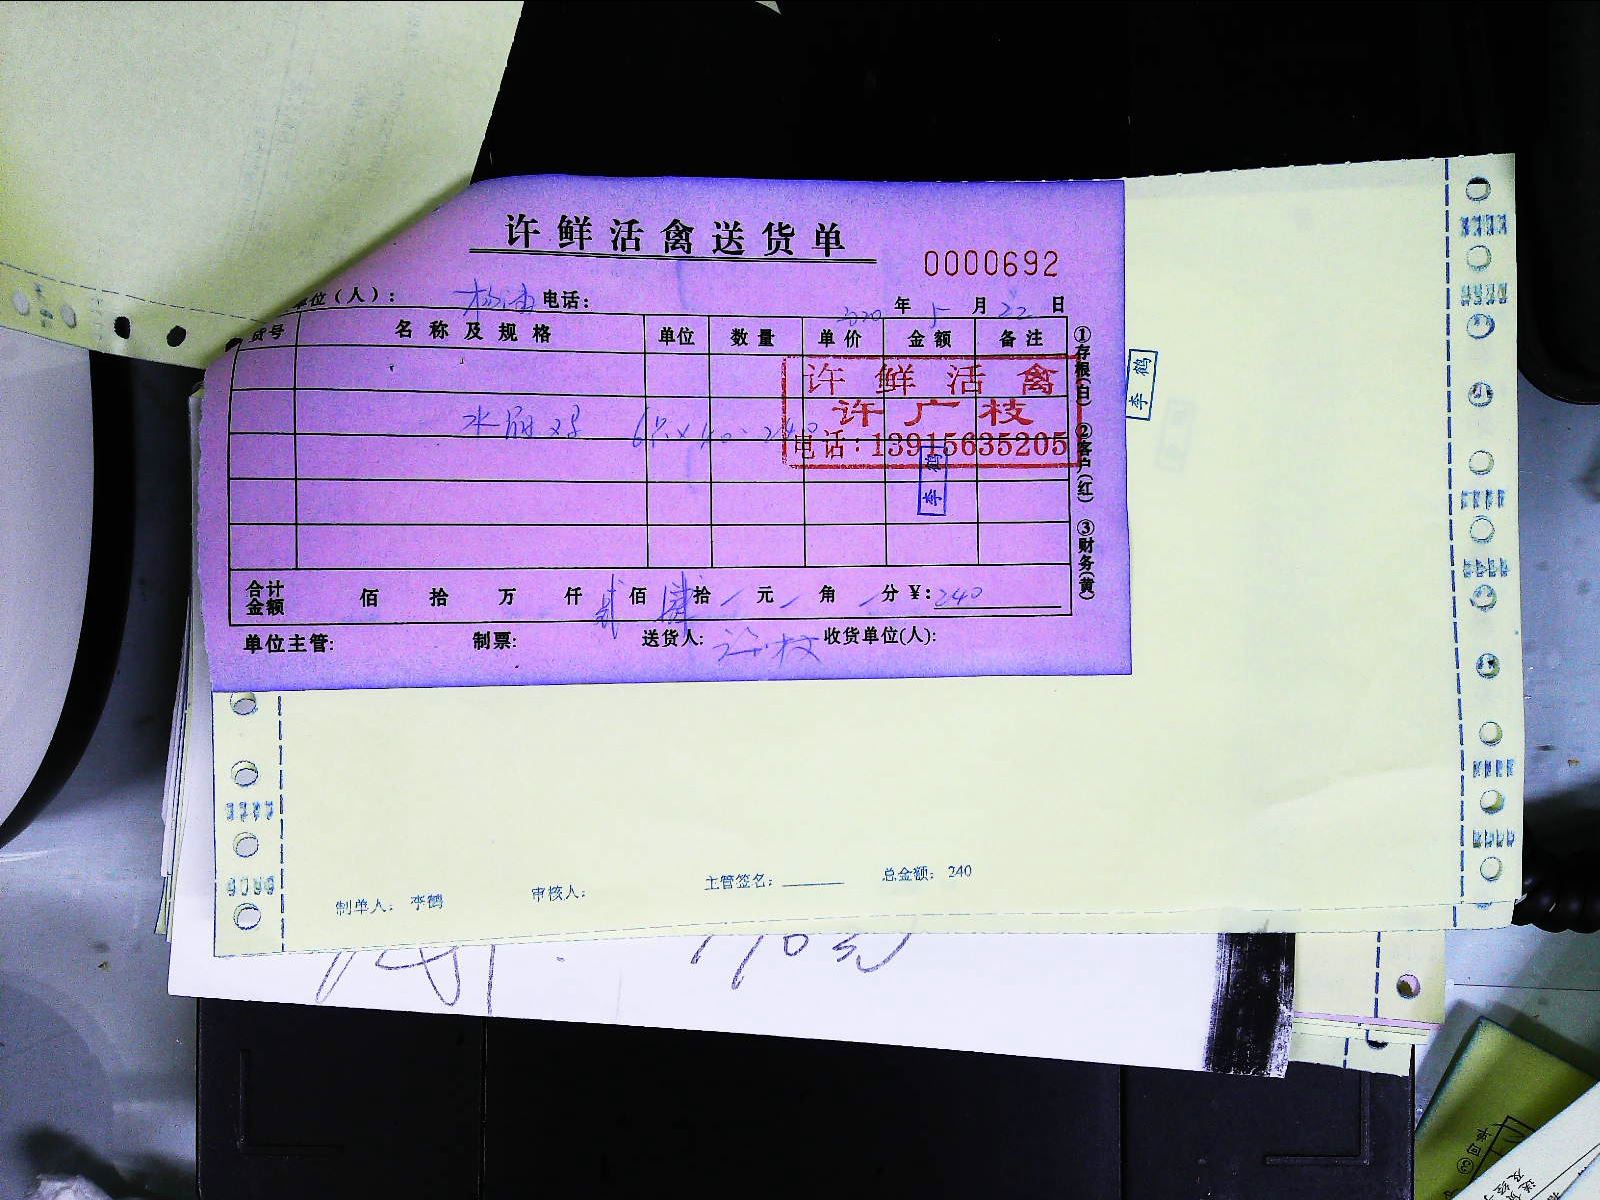 许鲜活禽送货单
0000692
单位（人）： 电话： 2020 年 5 月 22 日
货号 名称及规格 单位 数量 单价 金额 备注
许鲜活禽
许广枝
电话：13915635205
6只×40=240
李鹤
李鹤
①存根(白) ②客户(红) ③财务(黄)
合计金额 佰 拾 万 仟 贰 佰 肆 拾 元 角 分 ¥：240
单位主管： 制票： 送货人： 许枝 收货单位(人)：
制单人： 李鹤 审核人： 主管签名： 总金额： 240